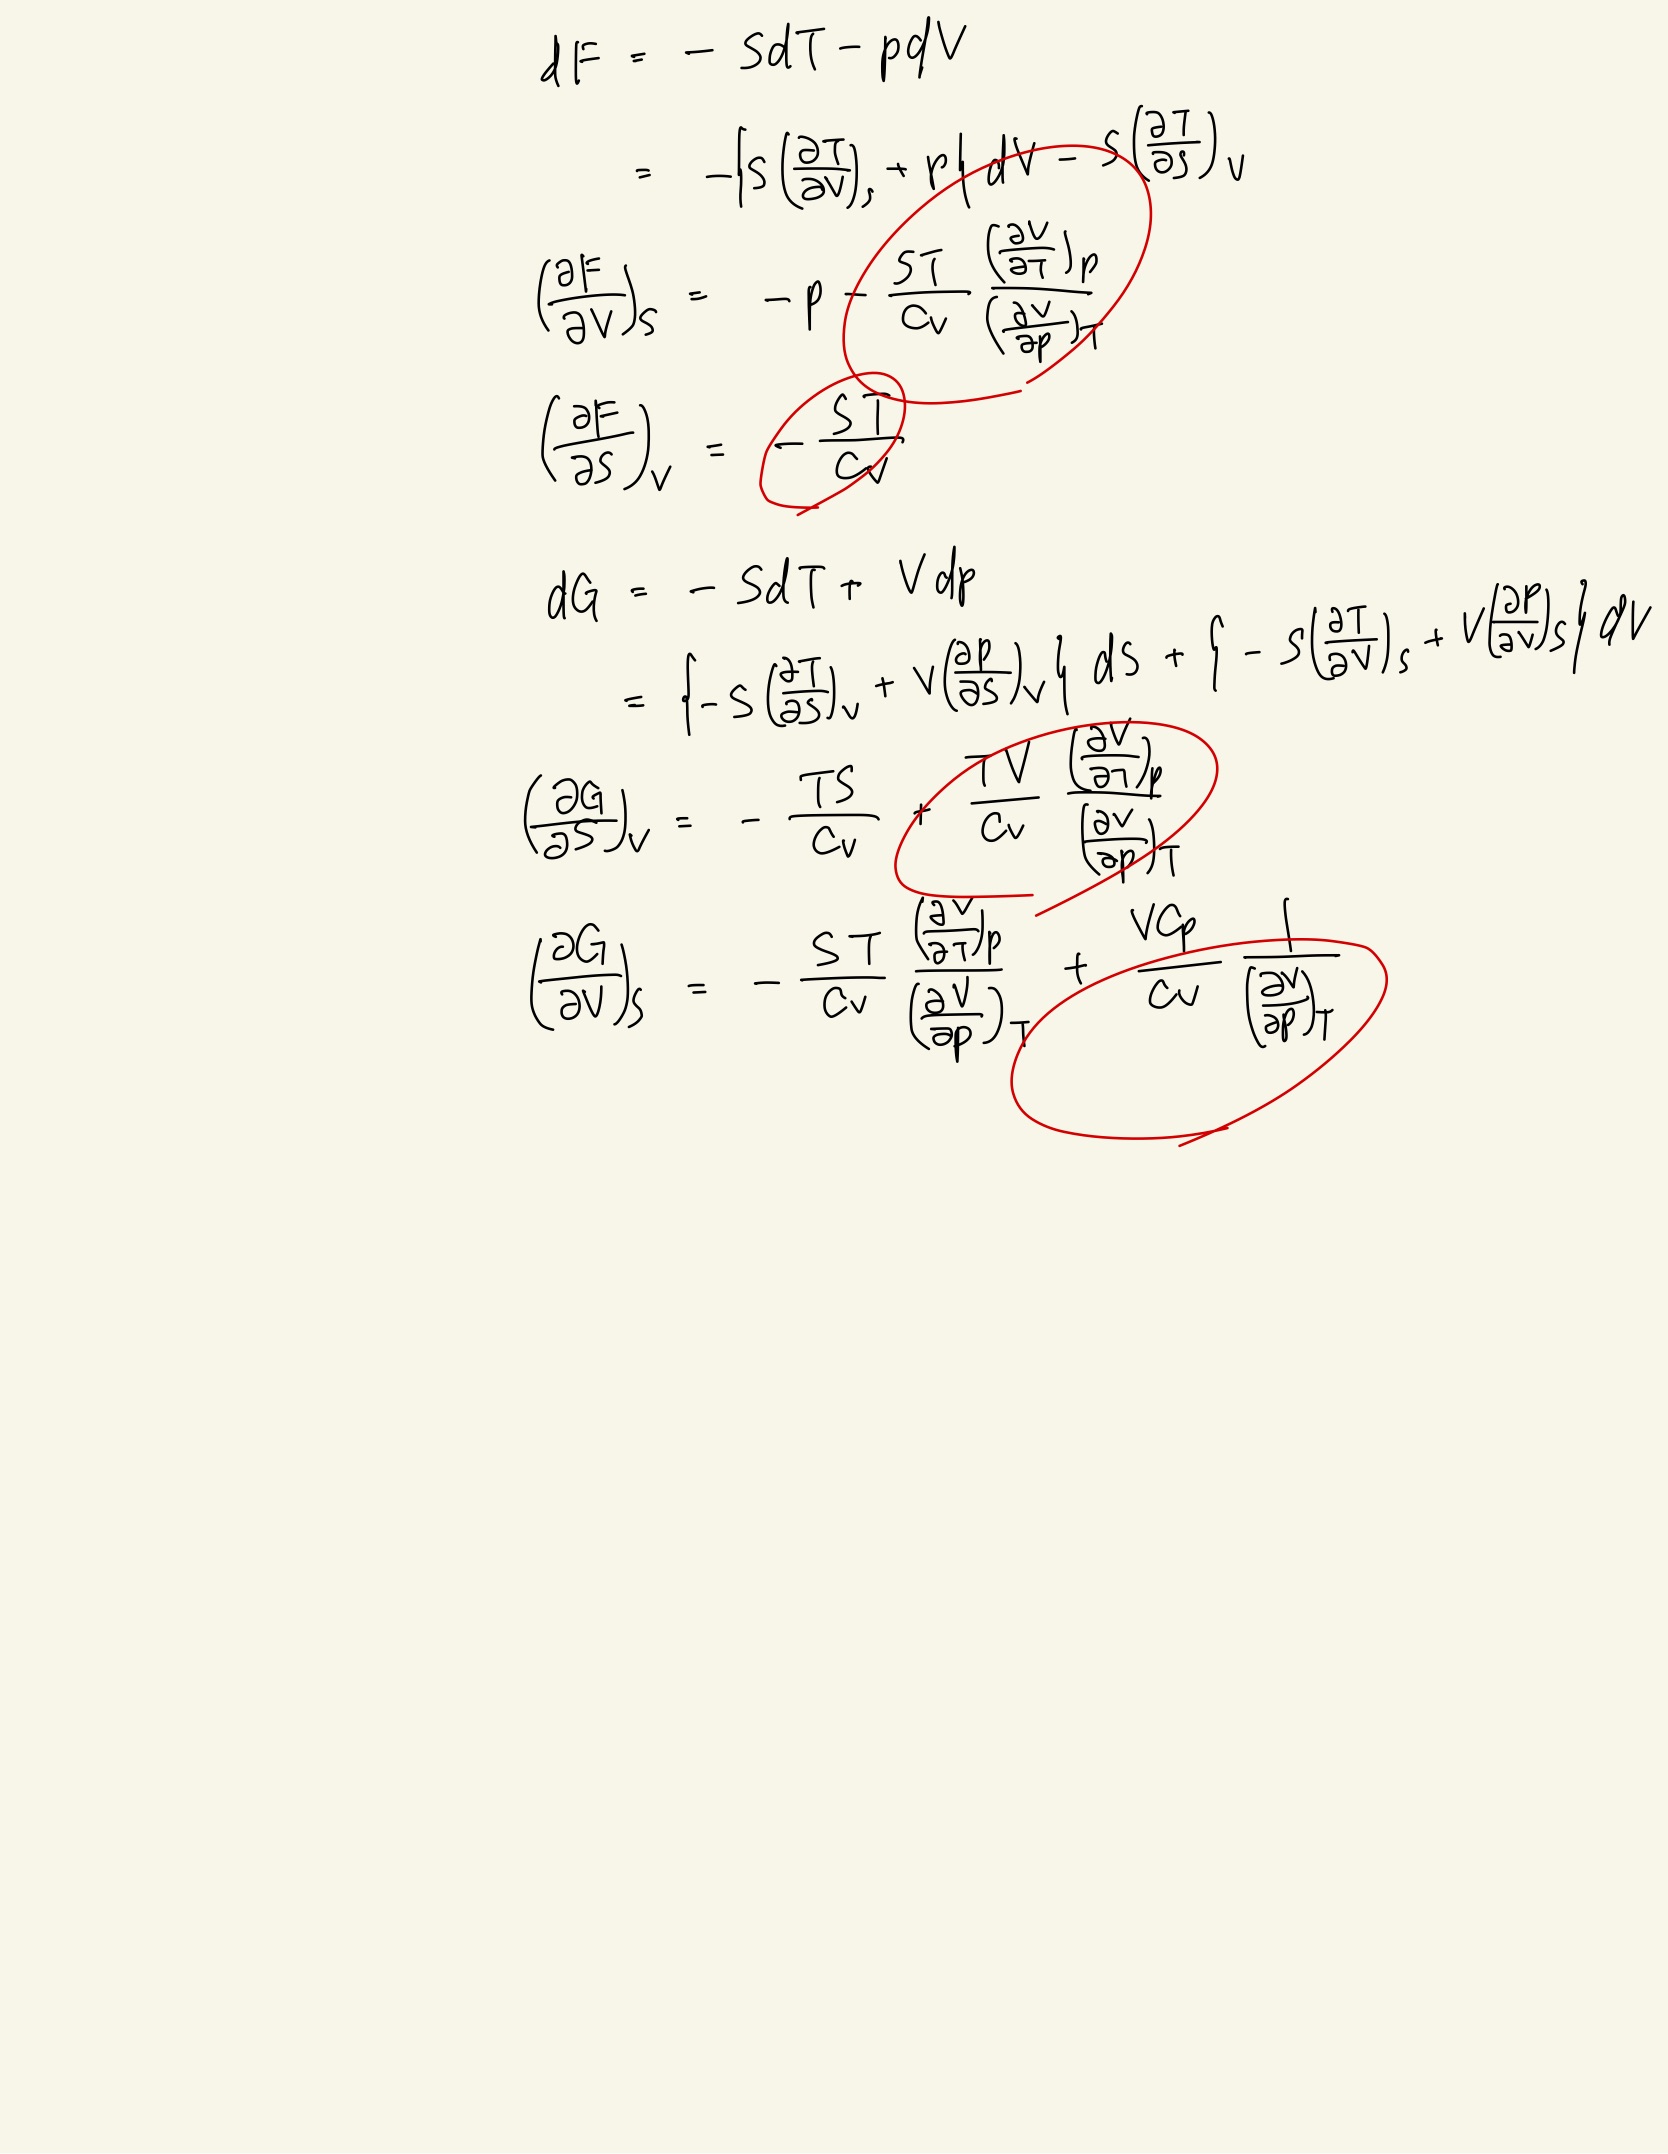 dF = - SdT - pdV
= -{S(∂T/∂V)_S + p} dV - S(∂T/∂S)_V
(∂F/∂V)_S = -p - ST/C_V (∂V/∂T)_p/(∂V/∂p)_T
(∂F/∂S)_V = - ST/C_V
dG = - SdT + Vdp
= {-S(∂T/∂S)_V + V(∂p/∂S)_V} dS + {-S(∂T/∂V)_S + V(∂p/∂V)_S} dV
(∂G/∂S)_V = - TS/C_V + TV/C_V (∂V/∂T)_p/(∂V/∂p)_T
(∂G/∂V)_S = - ST/C_V (∂V/∂T)_p/(∂V/∂p)_T + VC_p/C_V 1/(∂V/∂p)_T